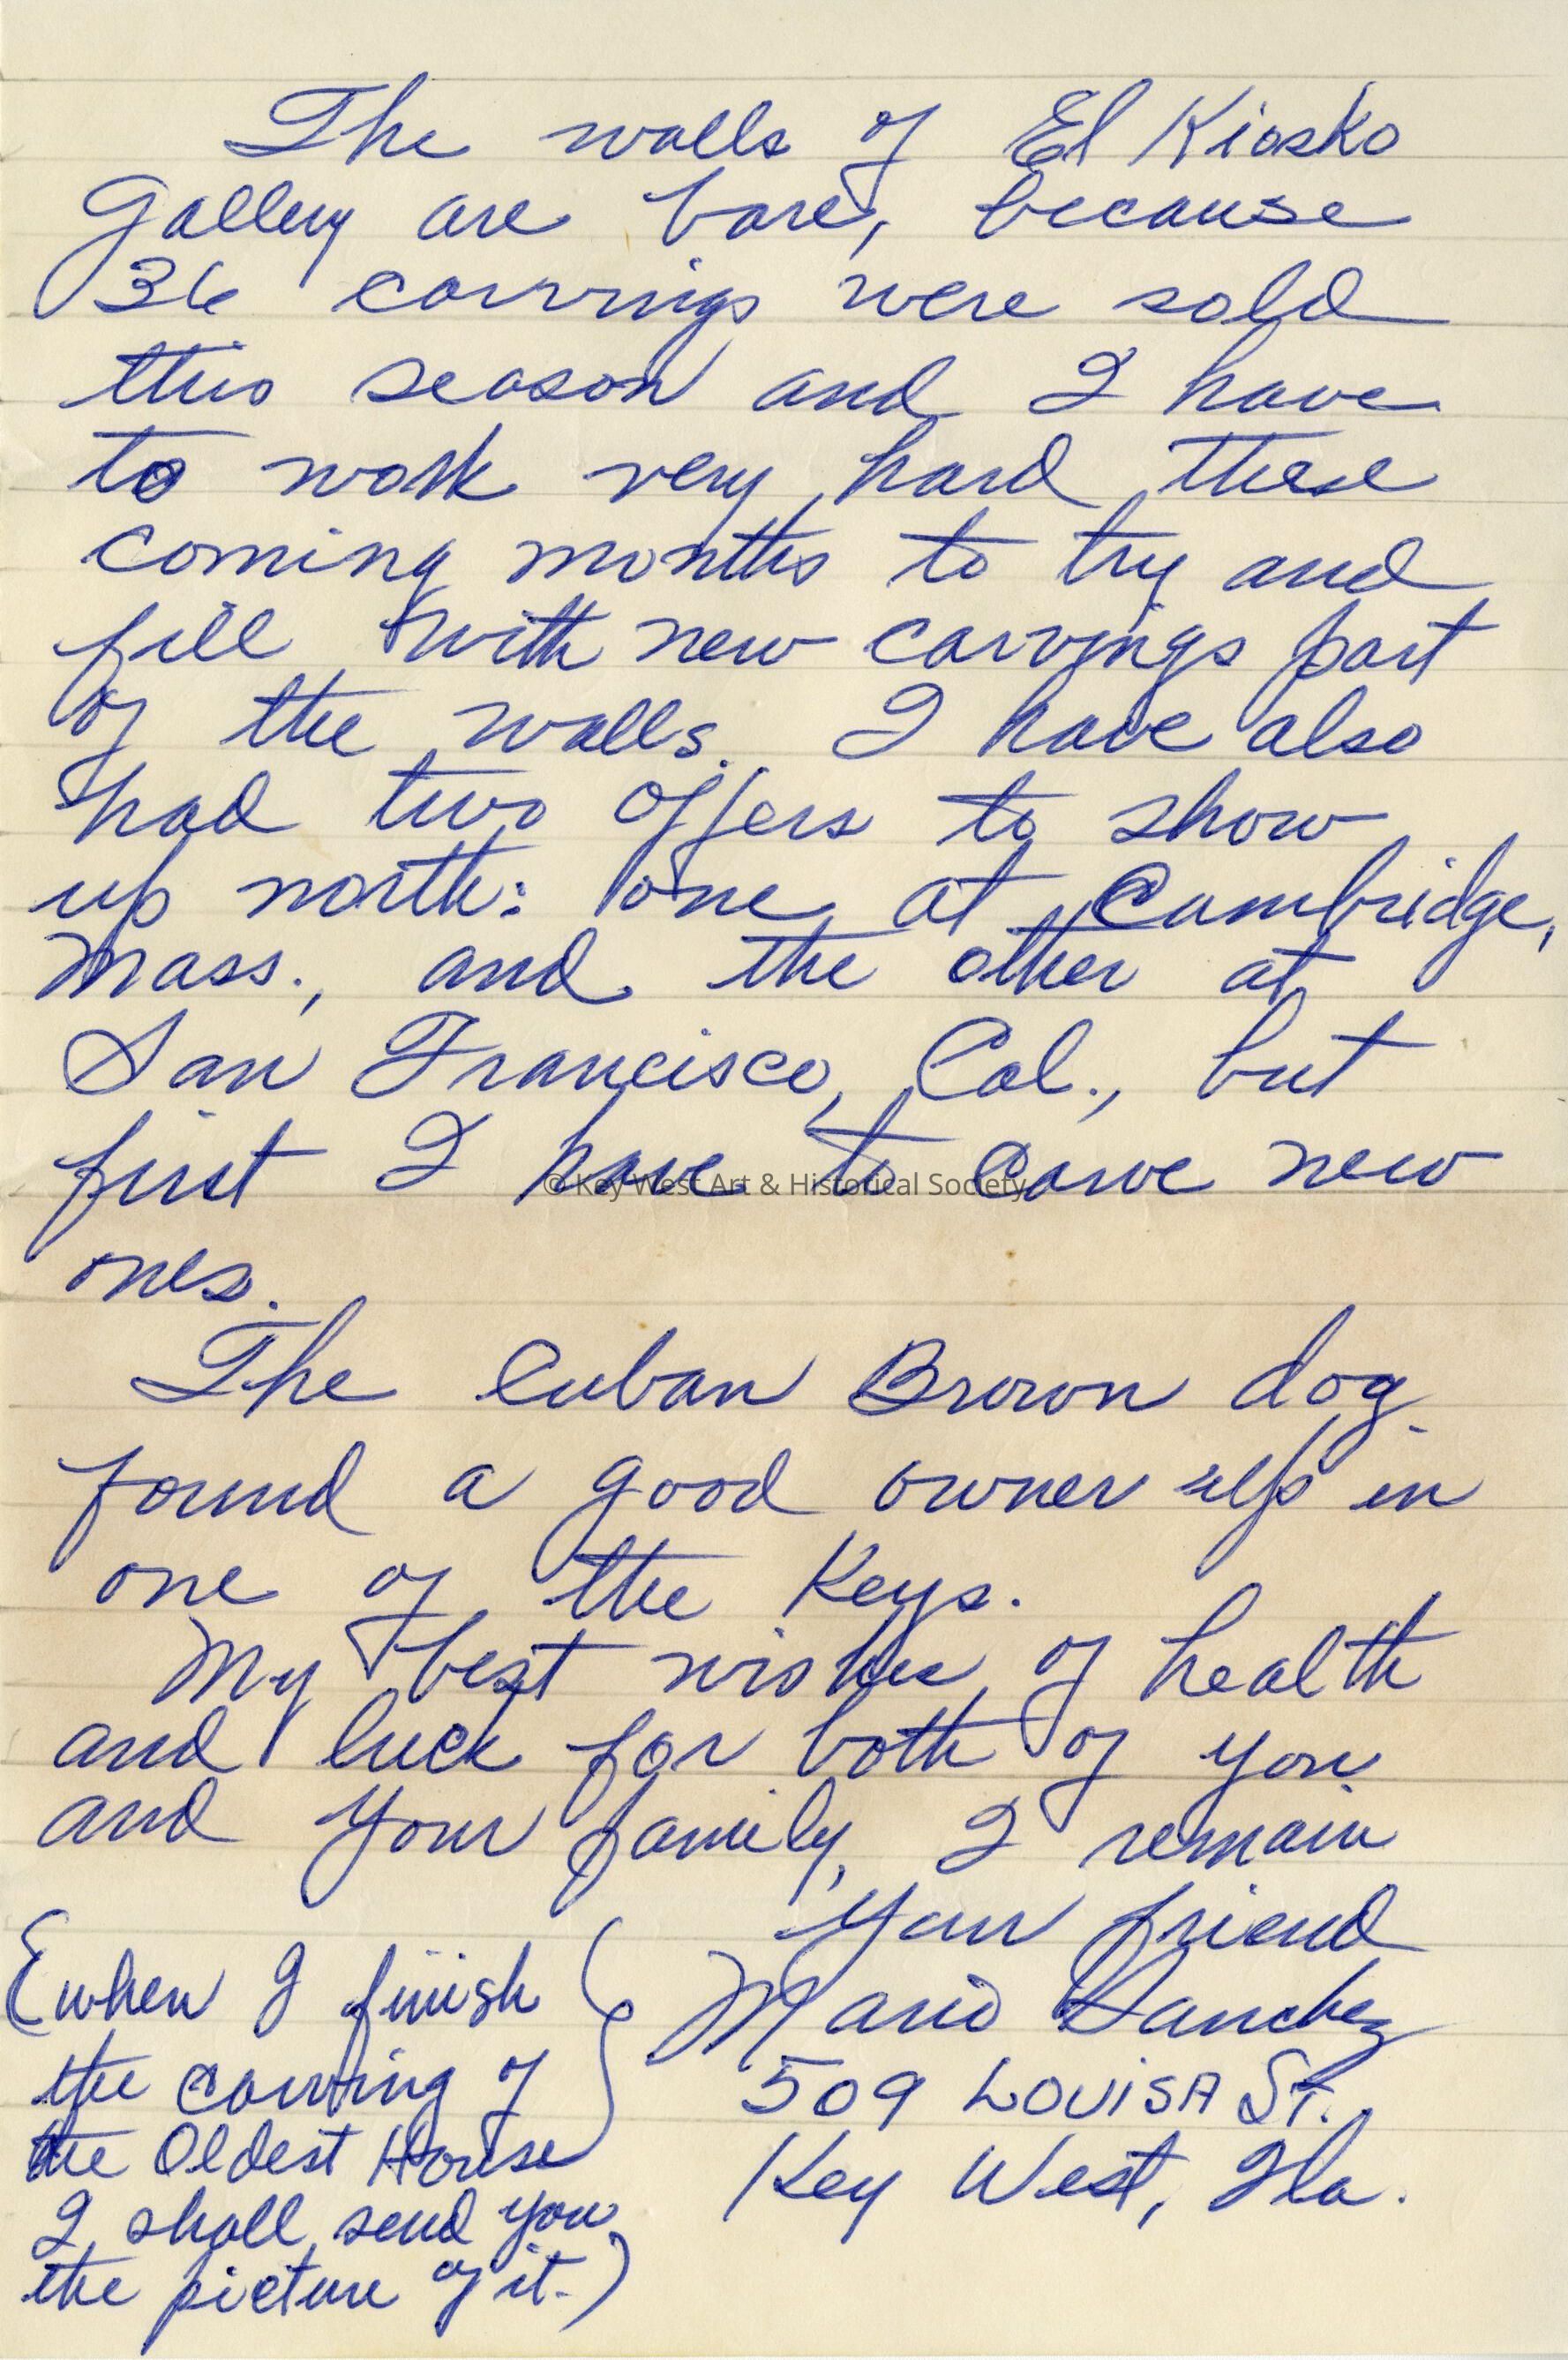 The walls of El Kiosko
Gallery are bare, because
36 carvings were sold
this season and I have
to work very hard these
coming months to try and
fill with new carvings part
of the walls. I have also
had two offers to show
up north: one at Cambridge,
Mass., and the other at
San Francisco, Cal., but
first I have to carve new
© Key West Art & Historical Society
ones.
The Cuban Brown dog
found a good owner up in
one of the Keys.
My best wishes of health
and luck for both of you
and your family, I remain
Your friend
Mario Sanchez
509 LOUISA St.
Key West, Fla.
(when I finish
the carving of
the Oldest House
I shall send you
the picture of it.)